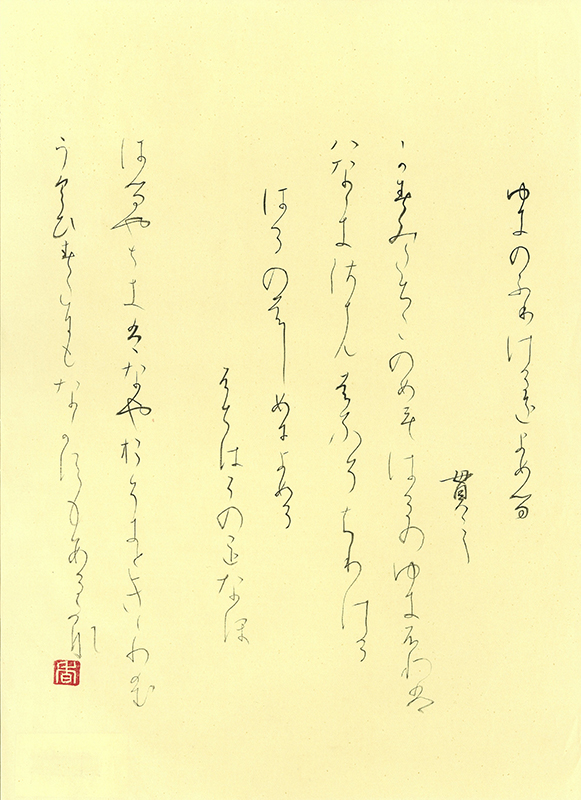 ゆきのふりけるをよめる
貫之
かすみたちこのめもはるのゆきふれは
はなゝきさともはなそちりける
はるのはしめによめる
ふちはらのことなほ
はるやときはなやおそきとききわかむ
うくひすたにもなかすもあるかな
香